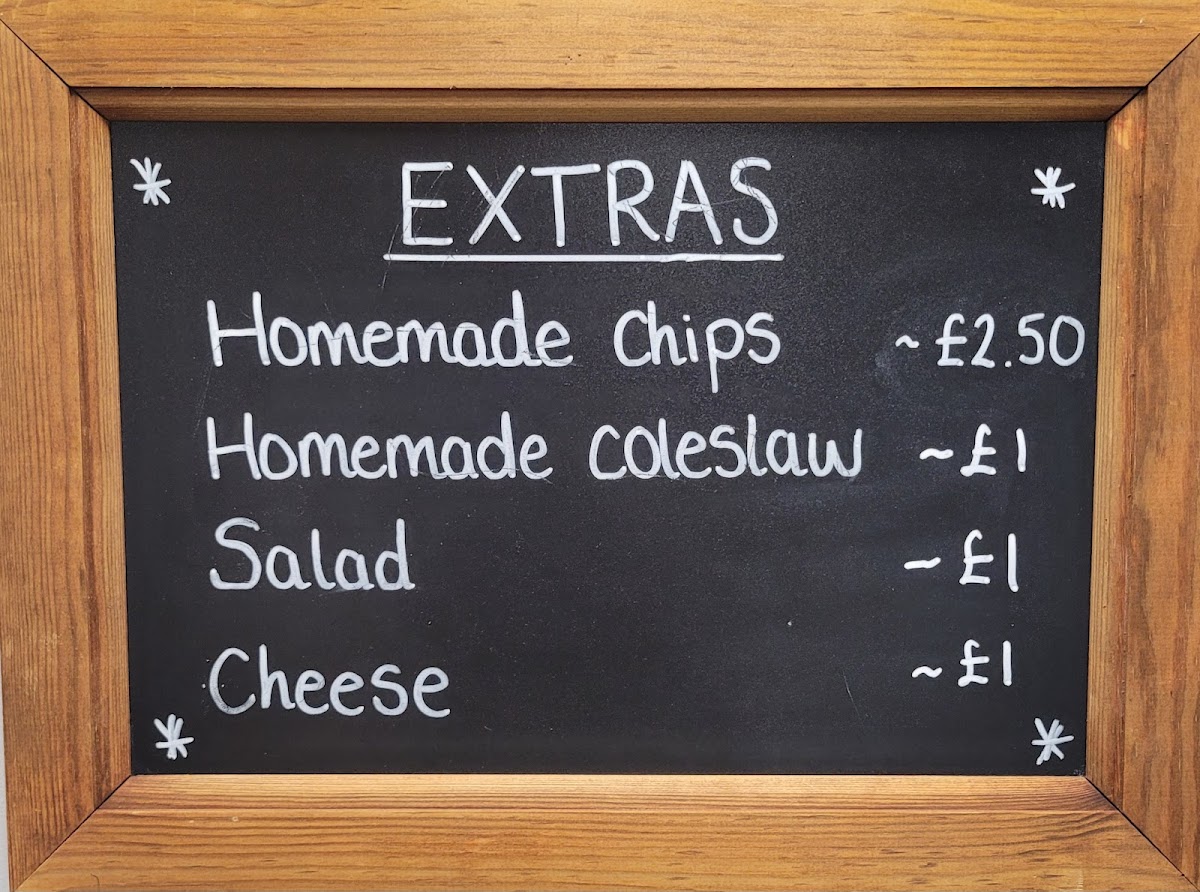 EXTRAS
Homemade chips ~ £2.50
Homemade coleslaw ~ £1
Salad ~ £1
Cheese ~ £1